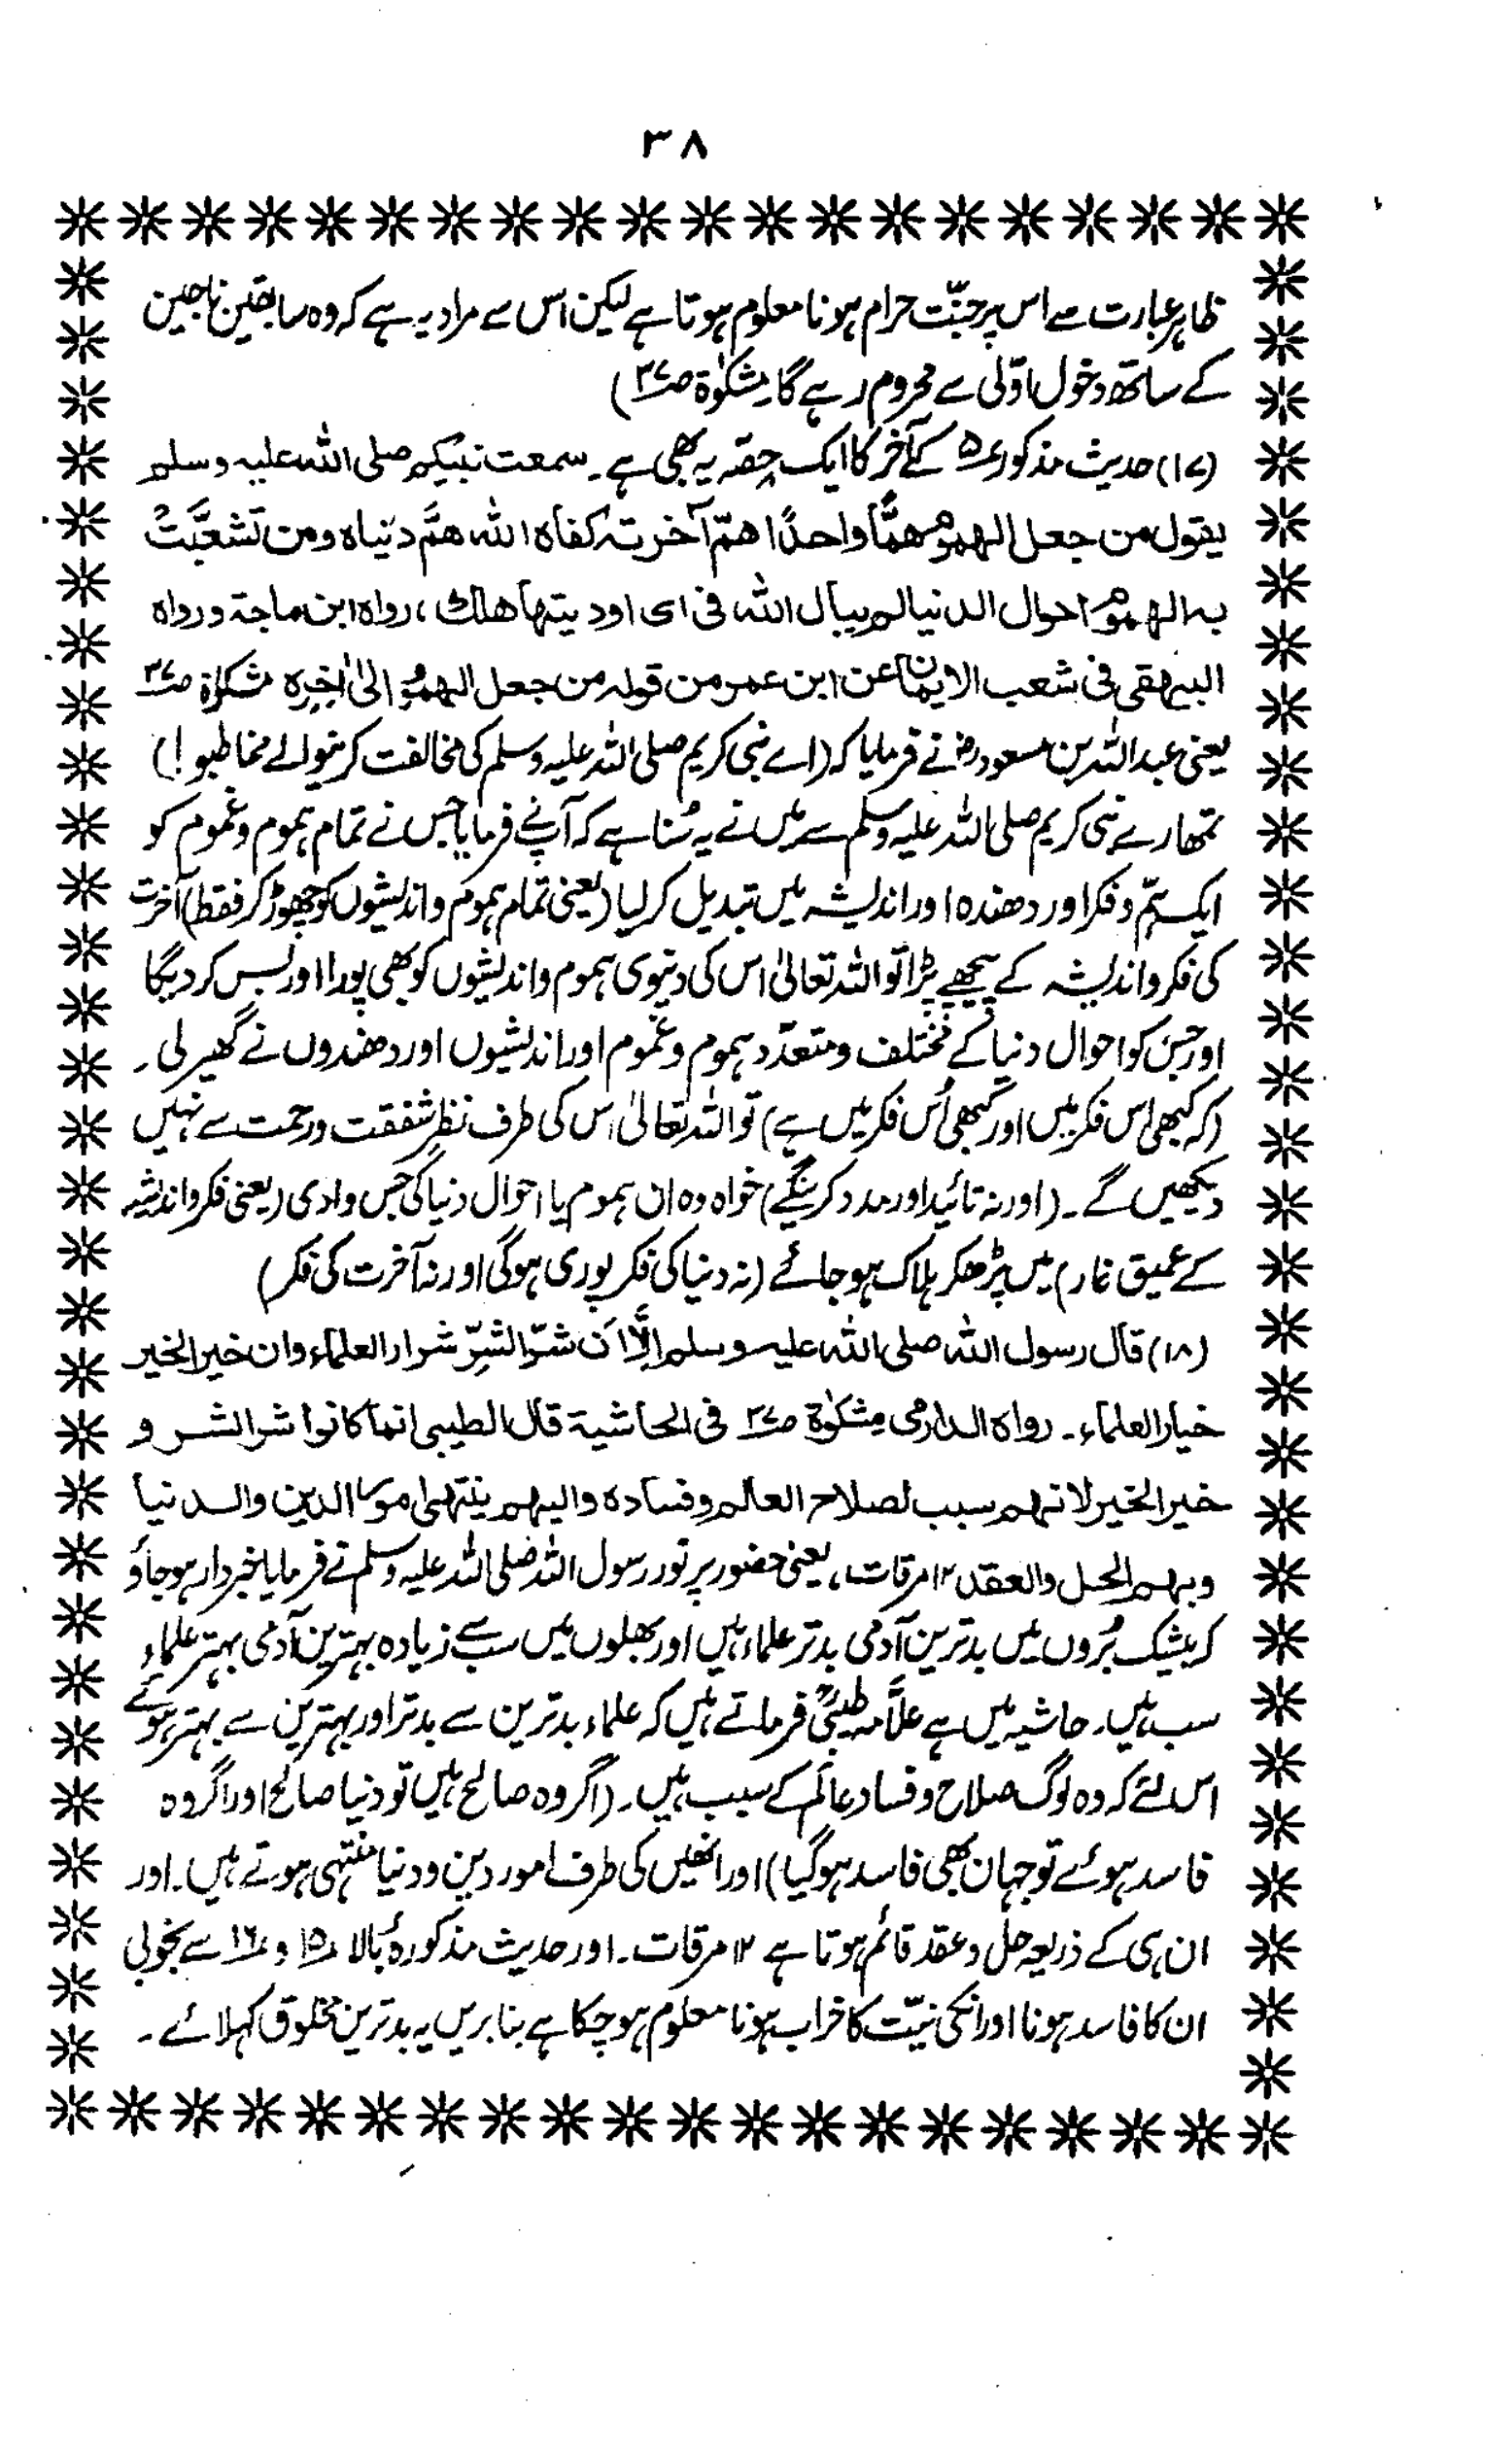 ۳۸
ظاہر عبارت سے اس پر جنّت حرام ہونا معلوم ہوتا ہے لیکن اس سے مراد یہ ہے کہ وہ سابقین ناجین
کے ساتھ دخول اوّلی سے محروم رہے گا مشکوٰۃ ص۳۷)
(۱۷) حدیث مذکور ۵ کے آخر کا ایک حصّہ یہ بھی ہے۔ سمعت نبیکم صلی اللہ علیہ وسلم
یقول من جعل الہموم ھمًّا واحدًا ھمّ آخرتہ کفاہ اللہ ھمَّ دنیاہ ومن تشعَّبَتْ
بہ الہموم احوال الدنیا لم یبال اللہ فی ای اودیتہا ھلک، رواہ ابن ماجۃ ورواہ
البیہقی فی شعب الایمان عن ابن عمر من قولہ من جعل الہموم الیٰ اٰخرہ مشکوٰۃ ص۳۷
یعنی عبداللہ بن مسعود رض نے فرمایا کہ (اے نبی کریم صلی اللہ علیہ وسلم کی مخالفت کرنیوالے مخاطبو!)
تمھارے نبی کریم صلی اللہ علیہ وسلم سے میں نے یہ سُنا ہے کہ آپنے فرمایا جس نے تمام ہموم وغموم کو
ایک ہمّ وفکر اور دھندہ اور اندیشہ میں تبدیل کر لیا (یعنی تمام ہموم واندیشوں کو چھوڑ کر فقط) آخرت
کی فکر واندیشہ کے پیچھے پڑا تو اللہ تعالیٰ اس کی دنیوی ہموم واندیشوں کو بھی پورا اور بس کر دیگا
اور جس کو احوال دنیا کے مختلف ومتعدّد ہموم وغموم اور اندیشوں اور دھندوں نے گھیر لی۔
(کہ کبھی اس فکر میں اور کبھی اُس فکر میں ہے) تو اللہ تعالیٰ اس کی طرف نظرِ شفقت ورحمت سے نہیں
دیکھیں گے۔ (اور نہ تائید اور مدد کرینگے) خواہ وہ ان ہموم یا احوال دنیا کی جس وادی (یعنی فکر واندیشہ
کے عمیق غار) میں پڑھکر ہلاک ہو جائے (نہ دنیا کی فکر پوری ہوگی اور نہ آخرت کی فکر)
(۱۸) قال رسول اللہ صلی اللہ علیہ وسلم اَلَا اِنَّ شرّ الشرّ شرار العلماء وان خیر الخیر
خیار العلماء۔ رواہ الدارمی مشکوٰۃ ص۳۷ فی الحاشیۃ قال الطیبی انما کانوا شر الشر و
خیر الخیر لانہم سبب لصلاح العالم وفسادہ والیہم ینتہی امور الدین والدنیا
وبہم الحل والعقد ۱۲ مرقات، یعنی حضور پر نور رسول اللہ صلی اللہ علیہ وسلم نے فرمایا خبردار ہو جاؤ
کہ بیشک بُروں میں بدترین آدمی بدتر علماء ہیں اور بھلوں میں سب سے زیادہ بہترین آدمی بہتر علماء
سب ہیں۔ حاشیہ میں ہے علّامہ طیبیؒ فرماتے ہیں کہ علماء بدترین سے بدتر اور بہترین سے بہتر ہوئے
اس لئے کہ وہ لوگ صلاح وفساد عالَم کے سبب ہیں۔ (اگر وہ صالح ہیں تو دنیا صالح اور اگر وہ
فاسد ہوئے تو جہان بھی فاسد ہو گیا) اور انھیں کی طرف امور دین ودنیا منتہی ہوتے ہیں۔ اور
ان ہی کے ذریعہ حل وعقد قائم ہوتا ہے ۱۲ مرقات۔ اور حدیث مذکورہ بالا ۱۵ و ۱۶ سے بخوبی
ان کا فاسد ہونا اور انکی نیّت کا خراب ہونا معلوم ہو چکا ہے بنا بریں یہ بدترین مخلوق کہلائے۔